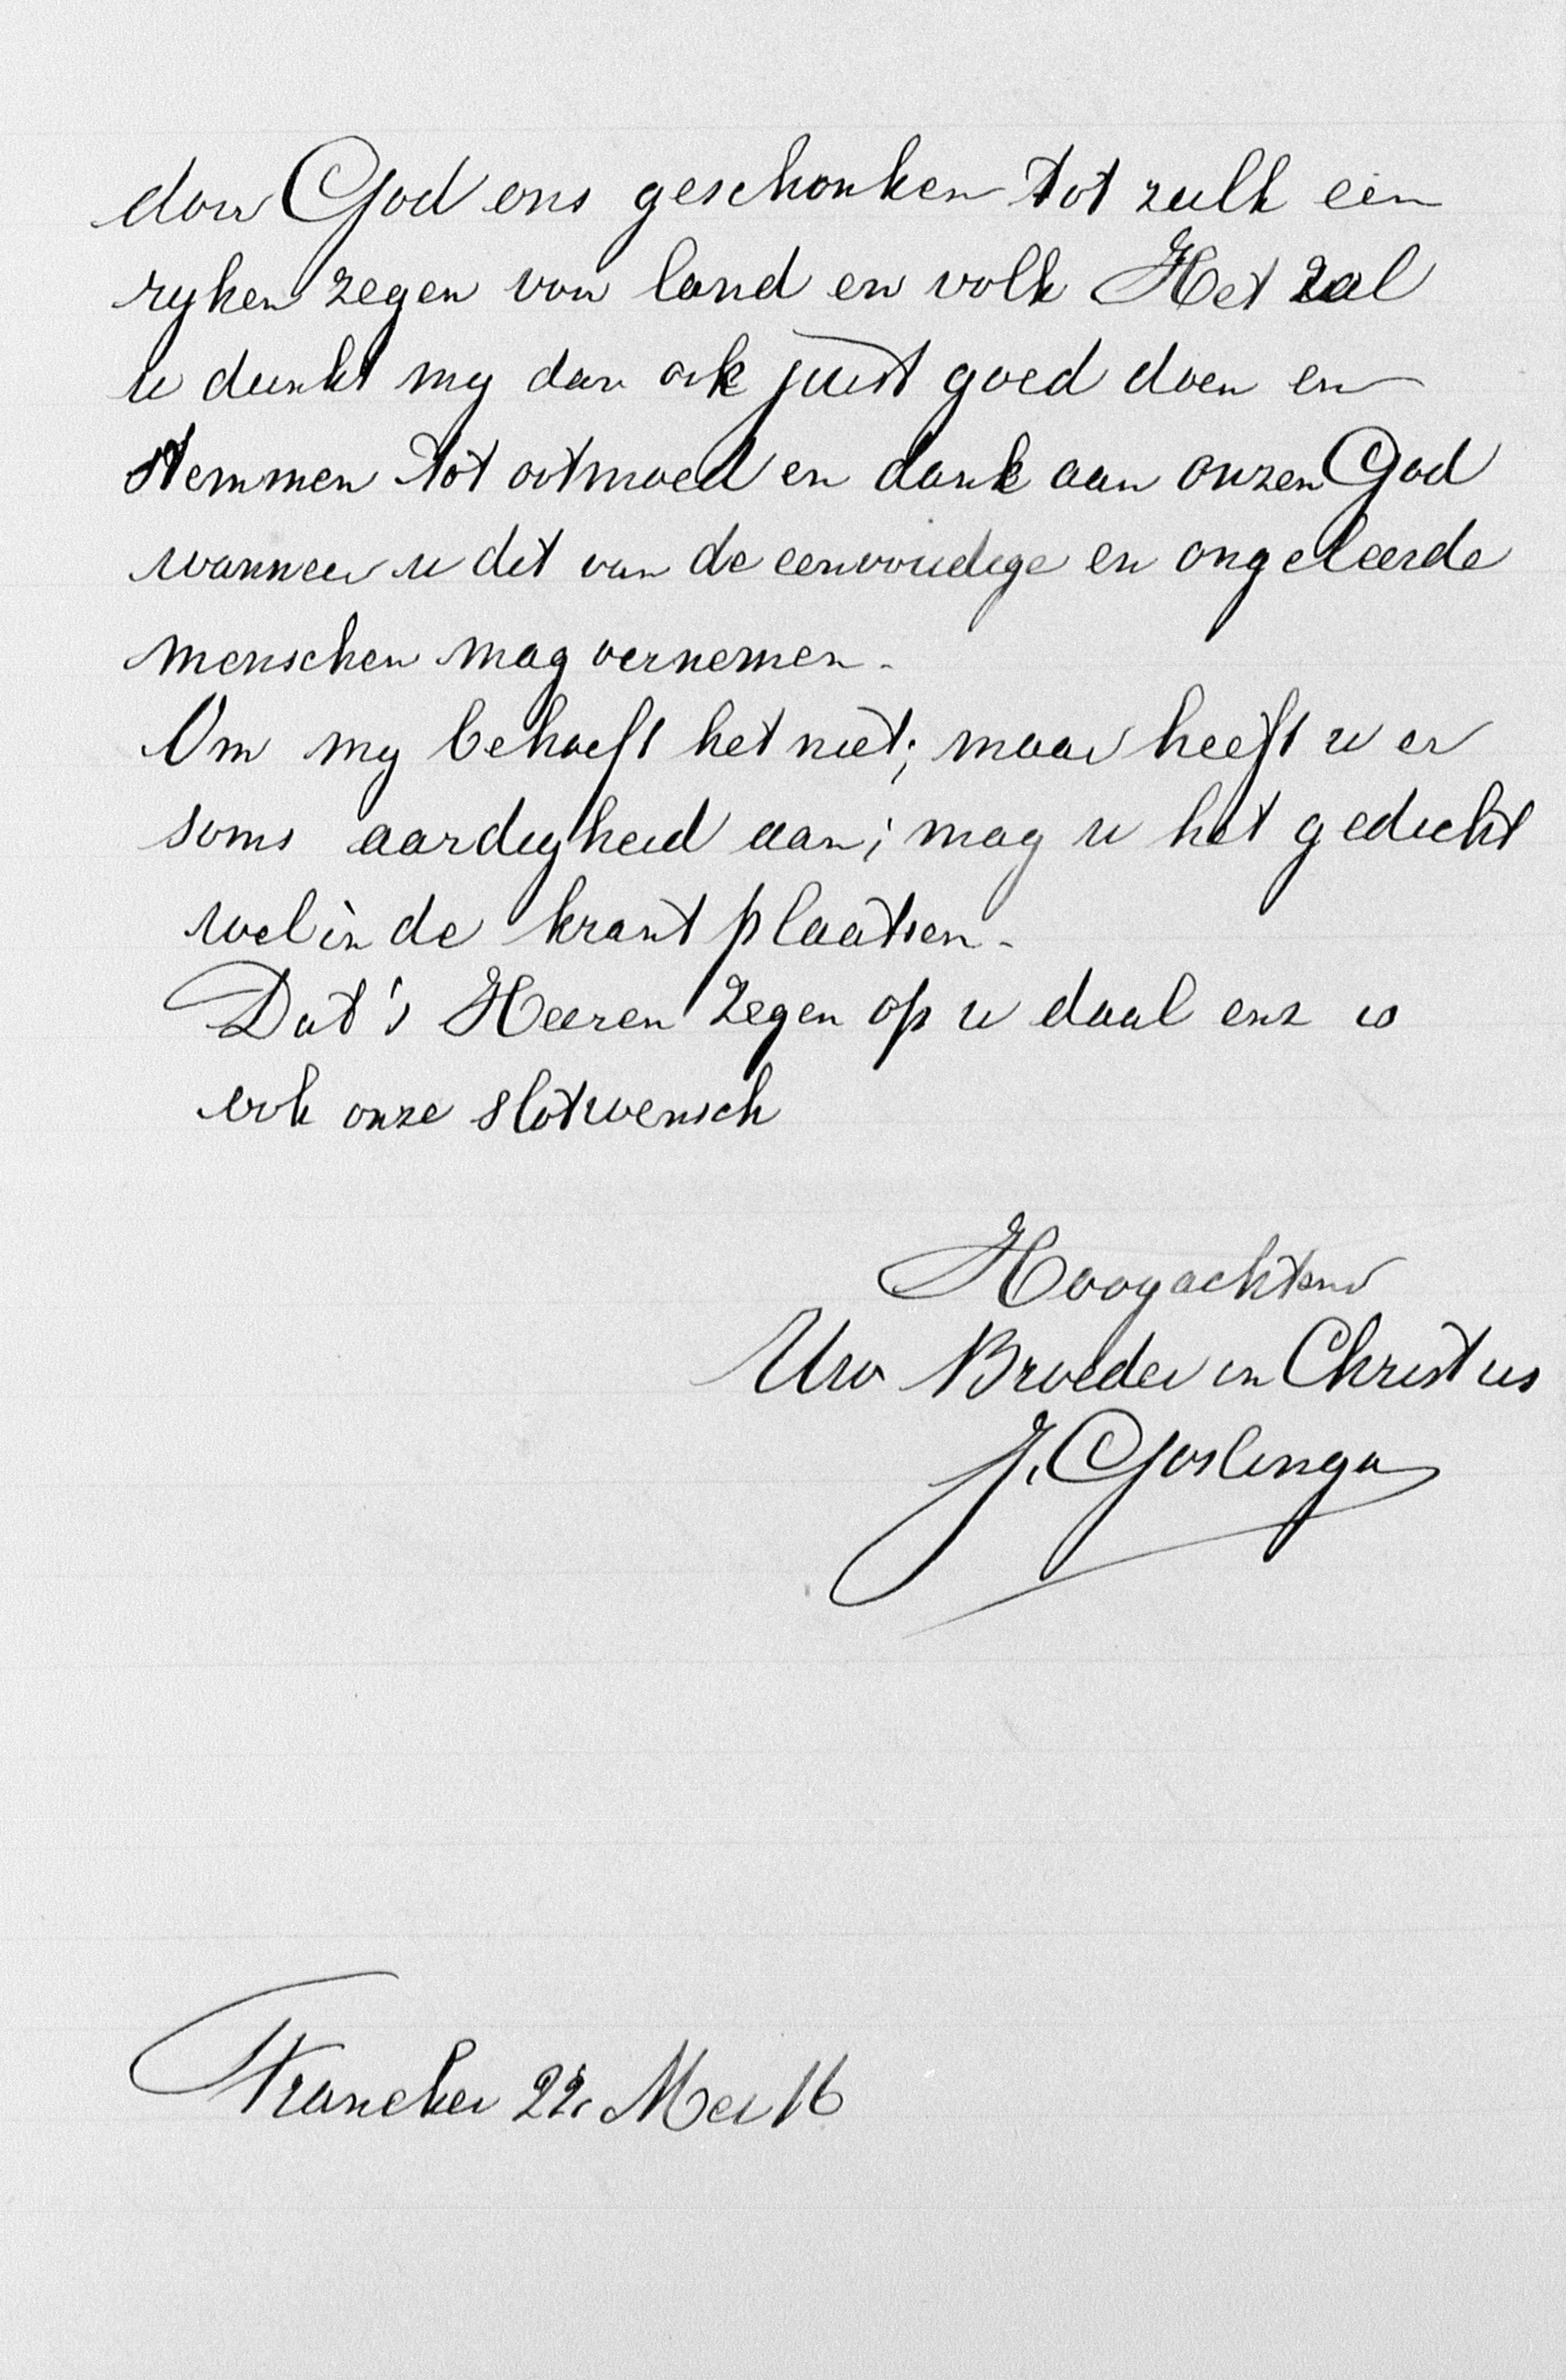 door God ons geschonken tot zulk een
ryken zegen van land en volk Het zal
u dunkt my dan ook juist goed doen en
stemmen tot ootmoed en dank aan onzen God
wanneer u dit van de eenvoudige en ongeleerde
menschen mag vernemen.
Om my behoeft het niet; maar heeft u er
soms aardigheid aan; mag u het gedicht
wel in de krant plaatsen.
Dat 's Heeren zegen op u daal enz is
ook onze slotwensch
Hoogachtend
Uw Broeder in Christus
J. Goslinga
Franeker 22 Mei 16